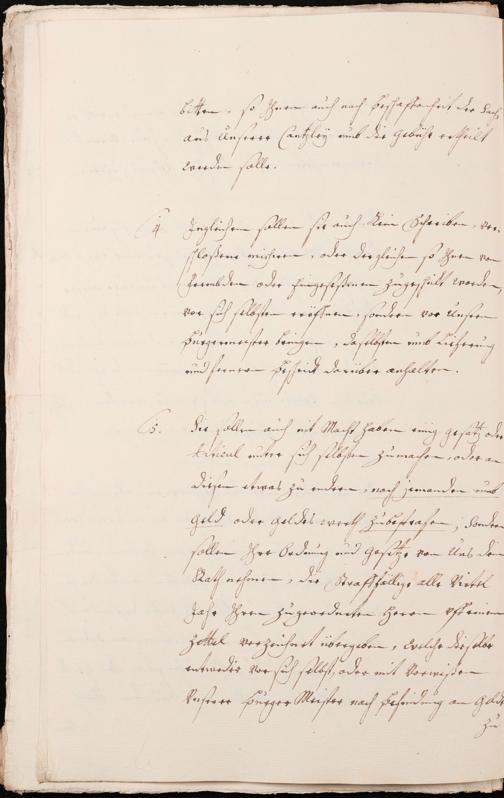 bitten, so Ihnen auch nach beschaffenheit der Sach
aus Unserer Cantzley umb die gebühr ertheilt
werden solle.
4. Ingleichem sollen sie auch kein Schreiben, ver-
schloßene missiven, oder dergleichen so Ihnen von
frembden oder eingeseßenen zugestellt werden,
vor sich selbsten eröffnen, sondern vor Unsern
burgermeister bringen, daselbsten umb Liefferung
und fernern bescheidt darüber anhalten.
5. Sie sollen auch nit Macht haben einig gesätz oder
Articul unter sich selbsten zumachen, oder an
diesen etwas zu endern, noch jemanden umb
geld oder geldes werth zubestrafen, Sondern
sollen Ihre Ordnung und gesetze von Uns dem
Rath nehmen, die Straffällige alle Viertel
Jahr Ihren zugeordneten Herrn uff einem
Zettel verzeichnet übergeben, Welche dieselbe
entweder vor sich selbst, oder mit Vorwißen
Unserer burger Meister nach befindung an Geldt
zu